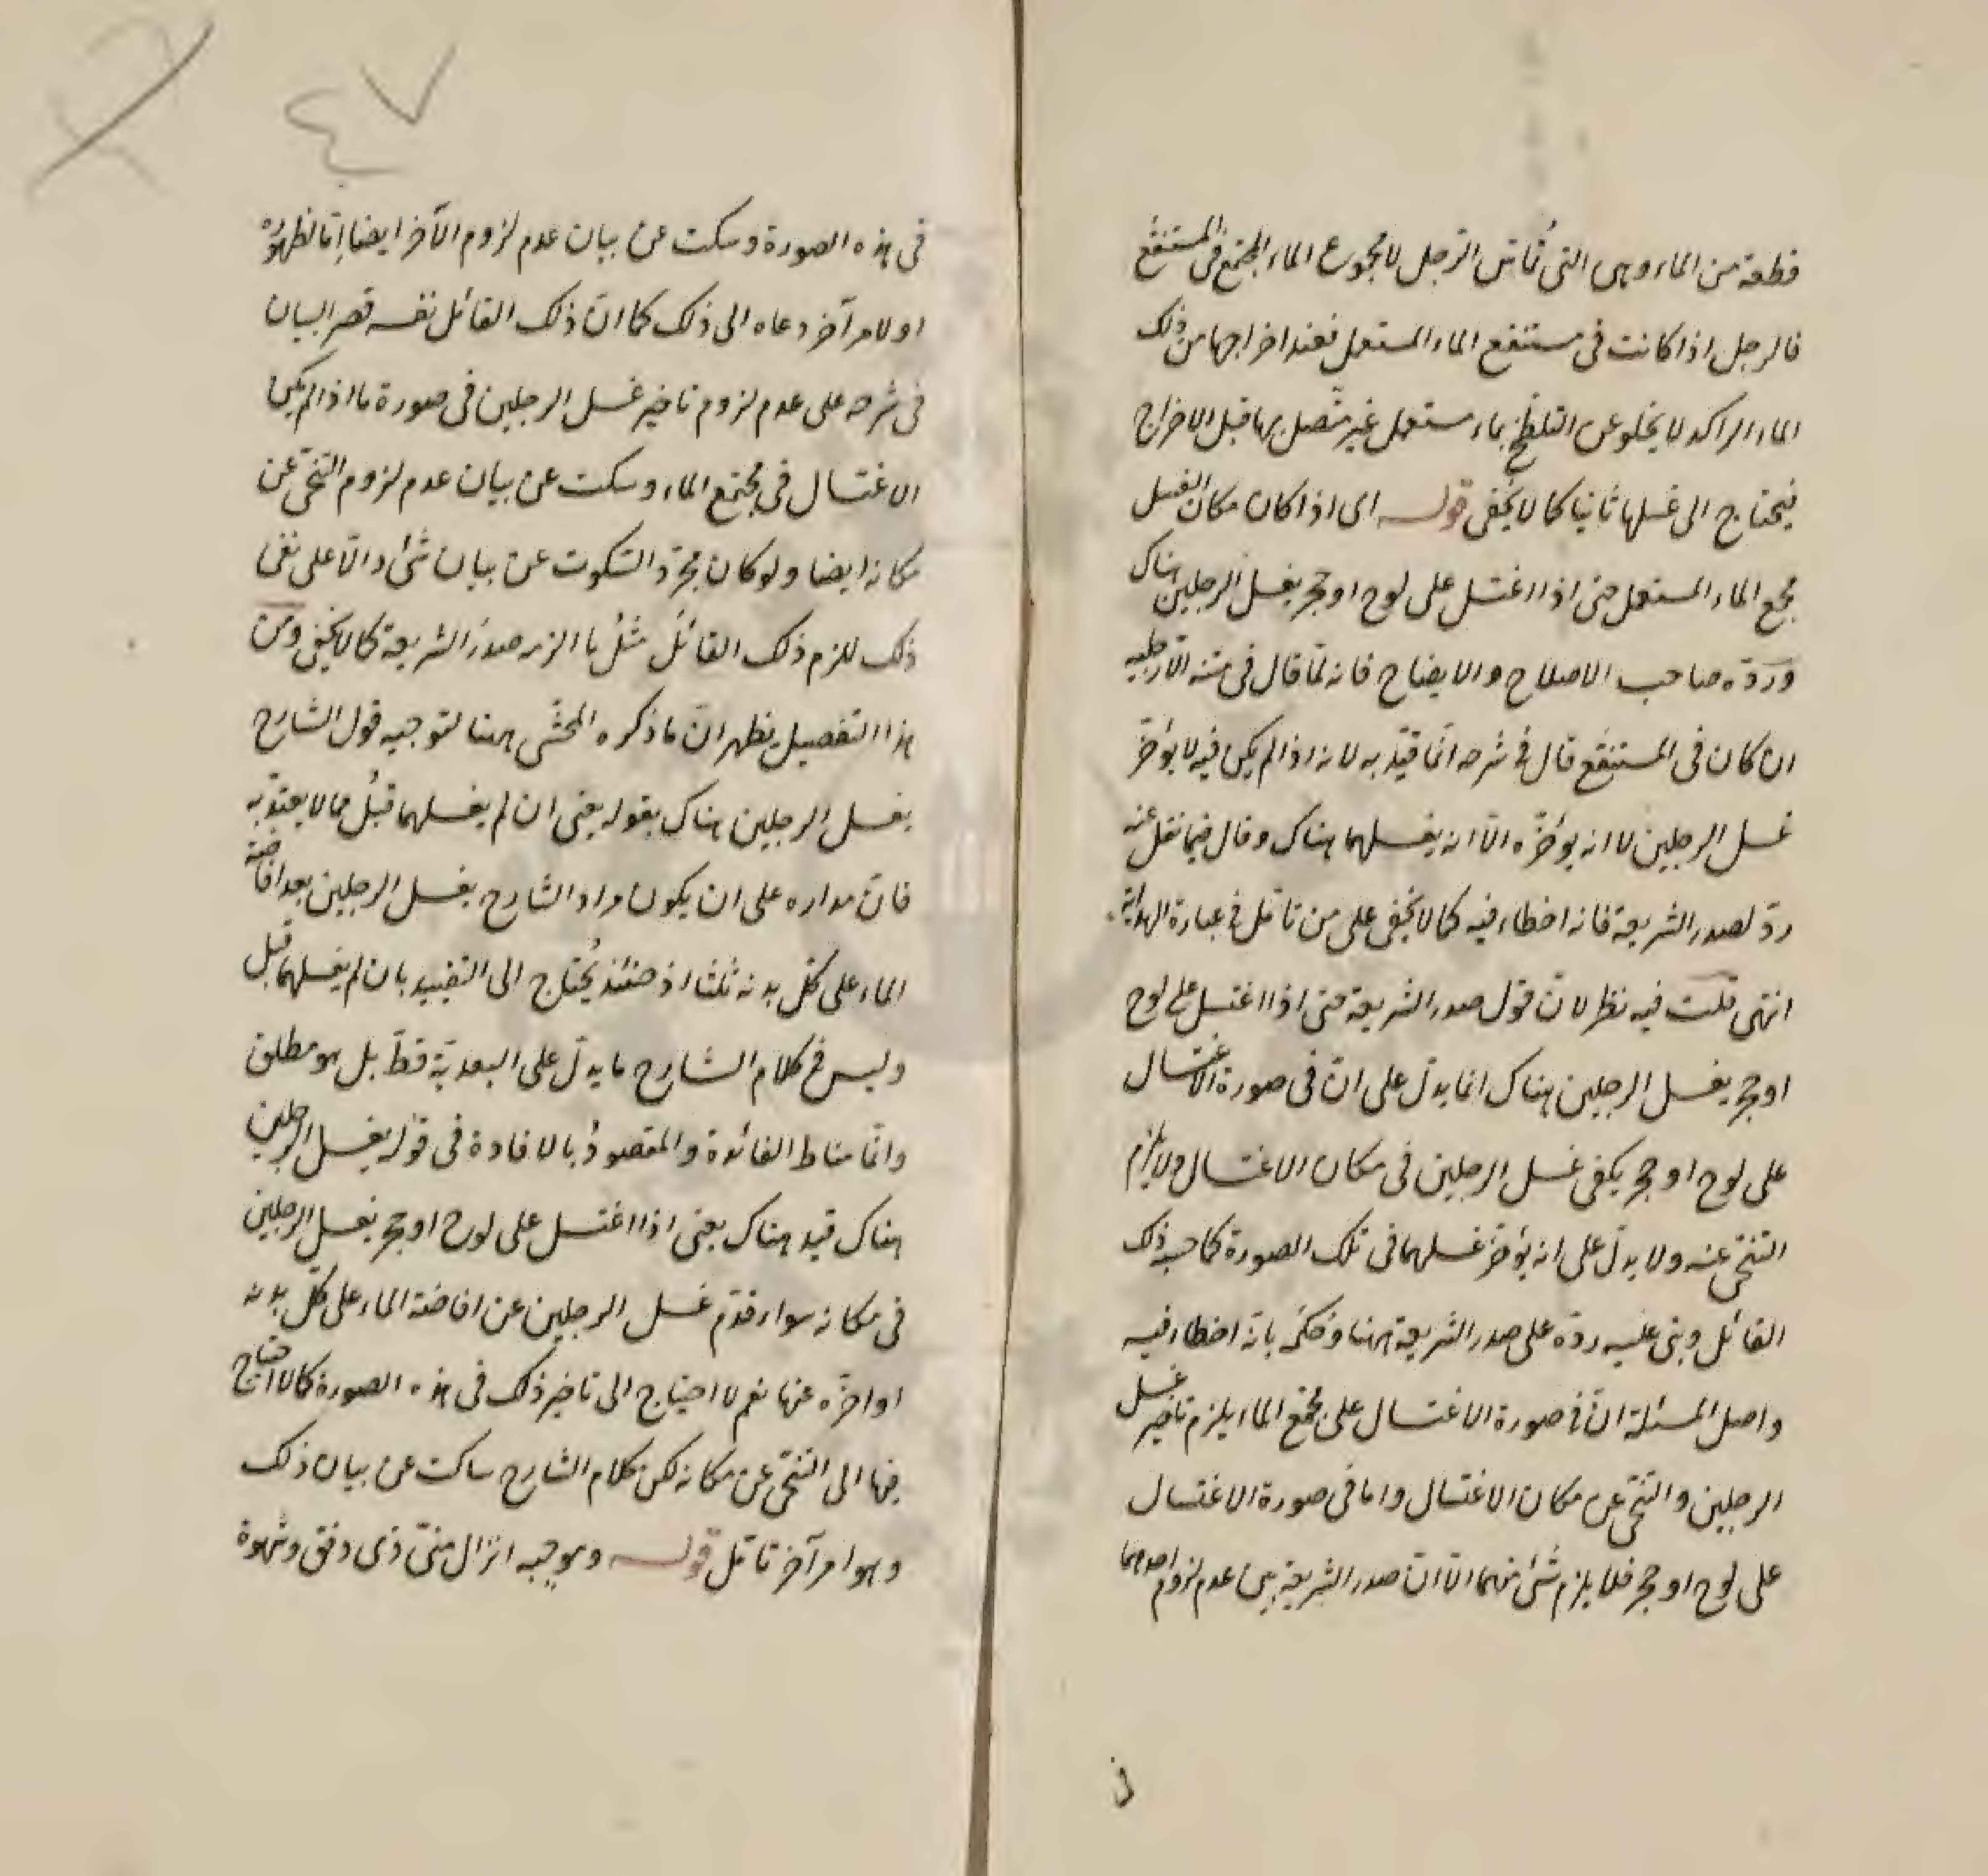 قطعة من الماء وهى التى تُماسّ الرّجل لا مجموع الماء المجتمع فى المستنقَع
فالرجل اذا كانت فى مستنقع الماء المستعمل فعند اخراجها من ذلك
الماء الراكد لا يخلو عن التلطّخ بماء مستعمل غير متّصل بها قبل الاخراج
فيحتاج الى غسلها ثانيا كما لا يخفى قوله اى اذا كان مكان الغسل
مجمع الماء المستعمل حتى اذا اغتسل على لوح او حجر يغسل الرجلين هناك
وردّه صاحب الاصلاح والايضاح فانه لمّا قال فى متنه الّا رجليه
ان كان فى المستنقَع قال فى شرحه انّما قيّد به لانه اذا لم يكن فيه لا يؤخّر
غسل الرجلين لا انه يؤخّره الّا انه يغسلهما هناك وقال فيما نقل عنه
ردّ لصدر الشريعة فانه اخطاء فيه كما لا يخفى على من تامّل فى عبارة الهداية
انتهى قلت فيه نظر لانّ قول صدر الشريعة حتى اذا اغتسل على لوح
او حجر يغسل الرجلين هناك انما يدلّ على انّ فى صورة الاغتسال
على لوح او حجر يكفى غسل الرجلين فى مكان الاغتسال ولا يلزم
التنحّى عنه ولا يدلّ على انه يؤخّر غسلهما فى تلك الصورة كما حسبه ذلك
القائل وبنى عليه ردّه على صدر الشريعة ههنا وحَكَم بانّه اخطاء فيه
واصل المسئلة انّ فى صورة الاغتسال على مجمع الماء يلزم تاخير غسل
الرجلين والتنحّى عن مكان الاغتسال واما فى صورة الاغتسال
على لوح او حجر فلا يلزم شئ منهما الّا انّ صدر الشريعة بين عدم لزوم احدهما
فى
٤٧
فى هذه الصورة وسكت عن بيان عدم لزوم الآخر ايضا اِمّا لظهوره
او لامر آخر دعاه الى ذلك كما انّ ذلك القائل نفسه قصر البيان
فى شرحه على عدم لزوم تاخير غسل الرجلين فى صورة ما اذا لم يكن
الاغتسال فى مجتمع الماء وسكت عن بيان عدم لزوم التنحّى عن
مكانه ايضا ولو كان مجرّد السّكوت عن بيان شئ دالّا على نفى
ذلك للزم ذلك القائلُ مثلُ ما الزمه صدرَ الشريعة كما لا يخفى ومن
هذا التفصيل يظهر انّ ما ذكره المحشّى ههنا لتوجيه قول الشارح
يغسل الرجلين هناك بقوله يعنى ان لم يغسلهما قبلُ مما لا يعتدّ به
فانّ مداره على ان يكون مراد الشارح يغسل الرجلين بعد افاضة
الماء على كلّ بدنه ثلثا اذ حينئذ يُحتاج الى التقييد بان لم يغسلهما قبل
وليس فى كلام الشارح ما يدلّ على البعديّة قطّ بل هو مطلق
وانّما مناط الفائدة والمقصودُ بالافادة فى قوله يغسل الرجلين
هناك قيد هناك يعنى اذا اغتسل على لوح او حجر يغسل الرجلين
فى مكانه سواء قدّم غسل الرجلين عن افاضة الماء على كلّ بدنه
او اخّره عنها نعم لا احتياج الى تاخير ذلك فى هذه الصورة كما لا احتياج
فيها الى التنحّى عن مكانه لكن كلام الشارح ساكت عن بيان ذلك
وهو امر آخر تامّل قوله وموجبه انزال منىّ ذى دفق وشهوة